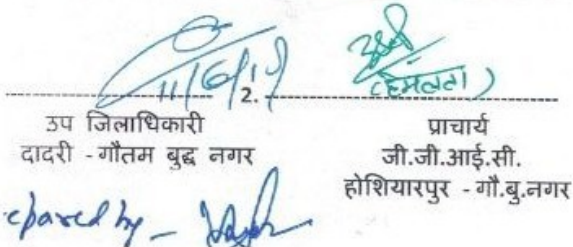 11/6/19
2.
(हेमलता)
उप जिलाधिकारी
दादरी - गौतम बुद्ध नगर
प्राचार्य
जी.जी.आई.सी.
होशियारपुर - गौ.बु.नगर
epared by -